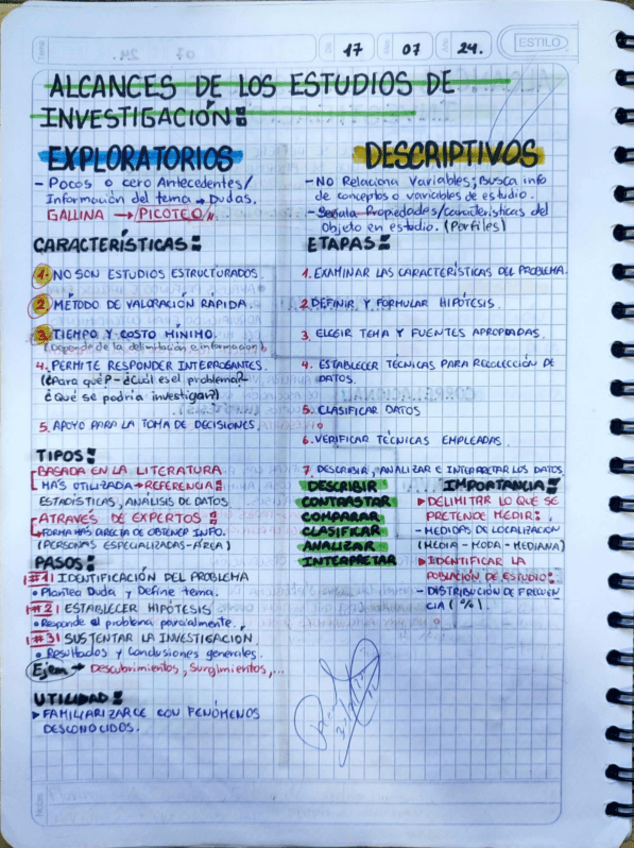 Día 17 Mes 07 Año 24.
ESTILO
ALCANCES DE LOS ESTUDIOS DE
INVESTIGACIÓN:
EXPLORATORIOS
- Pocos o cero Antecedentes/
Información del tema → Dudas.
GALLINA → PICOTEO
CARACTERÍSTICAS:
1. NO SON ESTUDIOS ESTRUCTURADOS.
2. MÉTODO DE VALORACIÓN RÁPIDA.
3. TIEMPO Y COSTO MÍNIMO.
(Depende de la delimitación e información)
4. PERMITE RESPONDER INTERROGANTES.
(¿Para qué? - ¿Cuál es el problema?-
¿Qué se podría investigar?)
5. APOYO PARA LA TOMA DE DECISIONES.
TIPOS:
BASADA EN LA LITERATURA
MÁS UTILIZADA → REFERENCIA:
ESTADÍSTICAS, ANÁLISIS DE DATOS.
ATRAVÉS DE EXPERTOS:
FORMA MÁS DIRECTA DE OBTENER INFO.
(PERSONAS ESPECIALIZADAS - ÁREA)
PASOS:
#1 IDENTIFICACIÓN DEL PROBLEMA
• Plantea Duda y Define tema.
#2 ESTABLECER HIPÓTESIS
• Responde al problema parcialmente.
#3 SUSTENTAR LA INVESTIGACIÓN
• Resultados y Conclusiones generales.
Ejem → Descubrimientos, Surgimientos,...
UTILIDAD:
▶ FAMILIARIZARCE CON FENÓMENOS
DESCONOCIDOS.
DESCRIPTIVOS
- NO Relaciona Variables; Busca info
de conceptos o variables de estudio.
- Señala Propiedades/características del
Objeto en estudio. (Perfiles)
ETAPAS:
1. EXAMINAR LAS CARACTERÍSTICAS DEL PROBLEMA.
2 DEFINIR Y FORMULAR HIPÓTESIS.
3. ELEGIR TEMA Y FUENTES APROPIADAS.
4. ESTABLECER TÉCNICAS PARA RECOLECCIÓN DE
DATOS.
5. CLASIFICAR DATOS
6. VERIFICAR TÉCNICAS EMPLEADAS.
7 DESCRIBIR, ANALIZAR E INTERPRETAR LOS DATOS.
DESCRIBIR
CONTRASTAR
COMPARAR
CLASIFICAR
ANALIZAR
INTERPRETAR
IMPORTANCIA:
▶ DELIMITAR LO QUE SE
PRETENDE MEDIR:
- MEDIDAS DE LOCALIZACIÓN
(MEDIA - MODA - MEDIANA)
▶ IDENTIFICAR LA
POBLACIÓN DE ESTUDIO:
- DISTRIBUCIÓN DE FRECUEN
CIA (%).